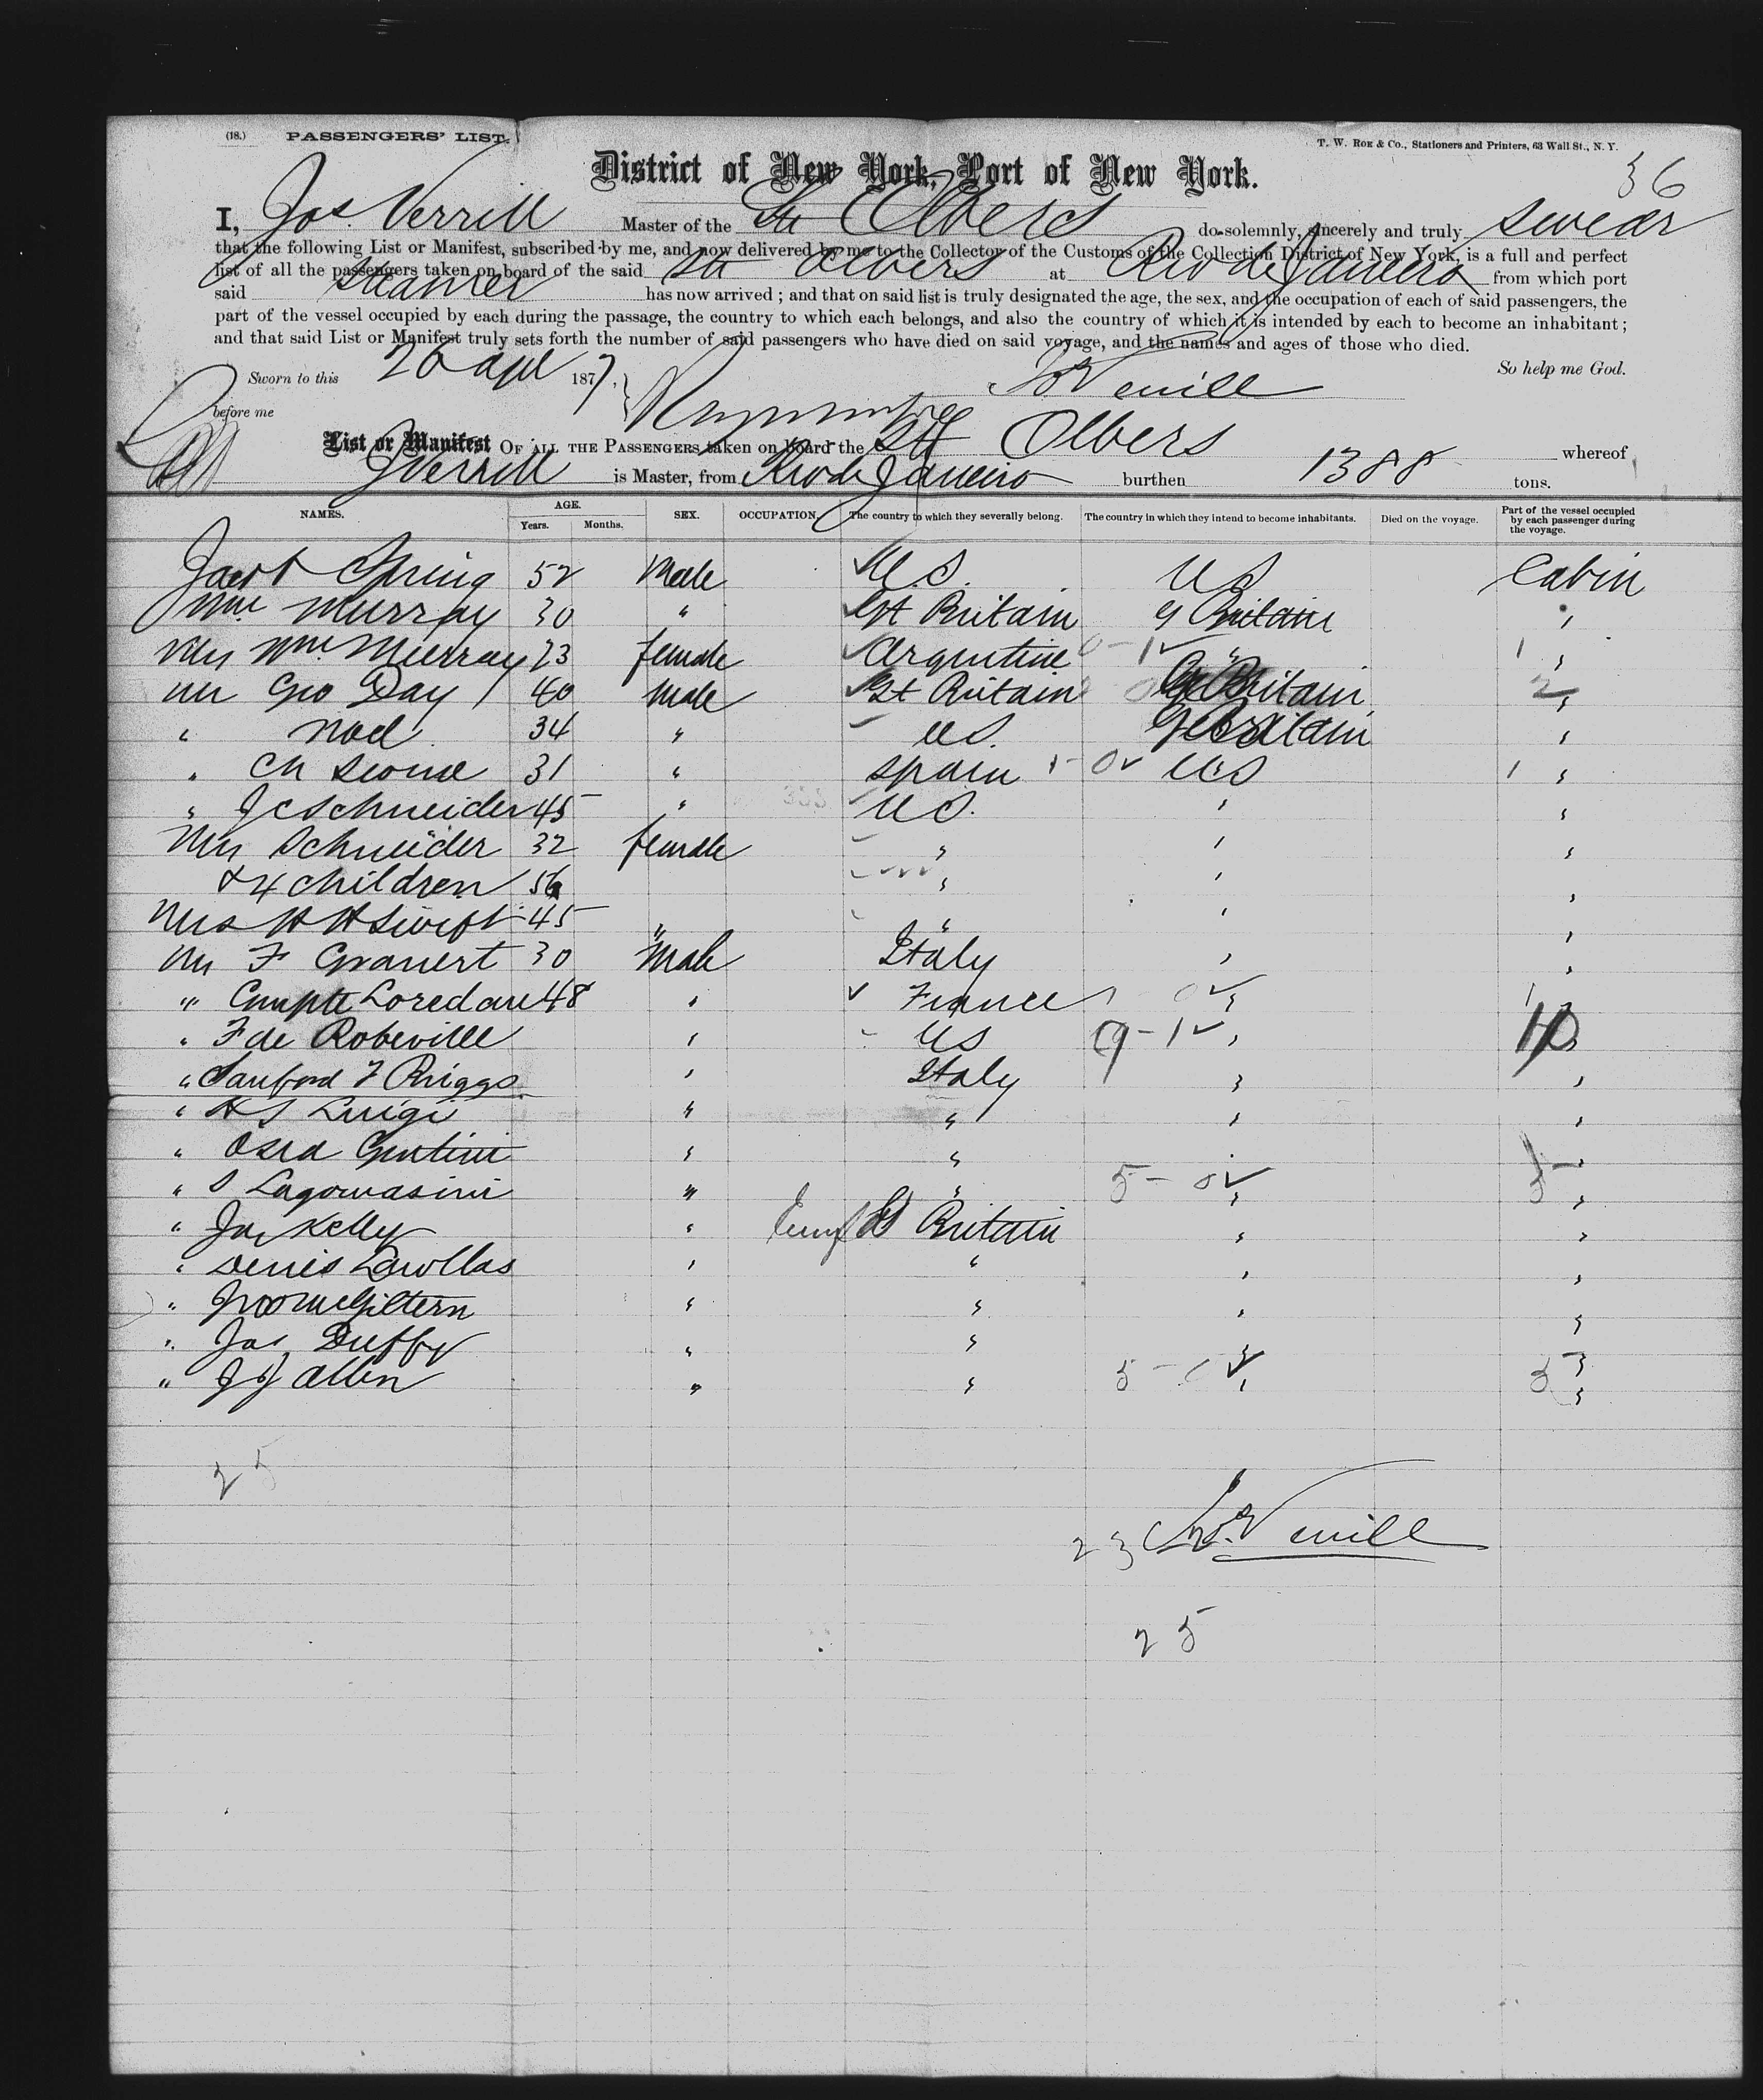 (18.) PASSENGERS' LIST. T. W. ROE & Co., Stationers and Printers, 63 Wall St., N. Y.
36
District of New York, Port of New York.
I, Jos. Verrill Master of the Str Olbers do solemnly, sincerely and truly swear
that the following List or Manifest, subscribed by me, and now delivered by me to the Collector of the Customs of the Collection District of New York, is a full and perfect
list of all the passengers taken on board of the said Str Olbers at Rio de Janeiro from which port
said Steamer has now arrived; and that on said list is truly designated the age, the sex, and the occupation of each of said passengers, the
part of the vessel occupied by each during the passage, the country to which each belongs, and also the country of which it is intended by each to become an inhabitant;
and that said List or Manifest truly sets forth the number of said passengers who have died on said voyage, and the names and ages of those who died.
Sworn to this 26 Apl 1877, Jos Verrill So help me God.
before me
List or Manifest OF ALL THE PASSENGERS taken on board the Str Olbers whereof
J Verrill is Master, from Rio de Janeiro burthen 1388 tons.
NAMES. AGE. Years. Months. SEX. OCCUPATION. The country to which they severally belong. The country in which they intend to become inhabitants. Died on the voyage. Part of the vessel occupied by each passenger during the voyage.
Jacob Spring 52 Male U S. U S Cabin
Wm. Murray 30 " Gt Britain G Britain "
Mrs Wm. Murray 23 female Argentine 0-1 " 1 "
Mr Geo Day 40 Male Gt Britain Gt Britain 2 "
" Noel 34 " U S. Gt Britain "
" Ch 31 " Spain 1-0 U S 1 "
" J C Schneider 45 " U S. " "
Mrs Schneider 32 female " " "
& 4 children " " "
Mrs H H Swift 45 " " " "
Mr F Granert 30 Male Italy " "
" Compte Loredan 48 " France " 1 "
" F de Robeville " U S 9-1 " 10 "
" Sanford F Briggs " Italy " "
" H S Luigi " " " "
" Gentini " " " "
" S Lagomasini " " 5-0 " 5 "
" Jas Kelly " Gt Britain " "
" Denis " " " "
" " " " "
" Jas Duffy " " " "
" J J Allen " " 5 " 5 "
25
23 Jos. Verrill
25